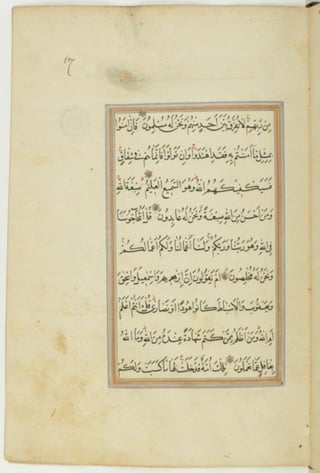 مِنْ رَبِّهِمْ لَا نُفَرِّقُ بَيْنَ أَحَدٍ مِنْهُمْ وَنَحْنُ لَهُ مُسْلِمُونَ فَإِنْ آمَنُوا
بِمِثْلِ مَا آمَنْتُمْ بِهِ فَقَدِ اهْتَدَوْا وَإِنْ تَوَلَّوْا فَإِنَّمَا هُمْ فِي شِقَاقٍ
فَسَيَكْفِيكَهُمُ اللَّهُ وَهُوَ السَّمِيعُ الْعَلِيمُ صِبْغَةَ اللَّهِ
وَمَنْ أَحْسَنُ مِنَ اللَّهِ صِبْغَةً وَنَحْنُ لَهُ عَابِدُونَ قُلْ أَتُحَاجُّونَنَا
فِي اللَّهِ وَهُوَ رَبُّنَا وَرَبُّكُمْ وَلَنَا أَعْمَالُنَا وَلَكُمْ أَعْمَالُكُمْ
وَنَحْنُ لَهُ مُخْلِصُونَ أَمْ يَقُولُونَ إِنَّ إِبْرَاهِيمَ وَإِسْمَاعِيلَ وَإِسْحَقَ
وَيَعْقُوبَ وَالْأَسْبَاطَ كَانُوا هُودًا أَوْ نَصَارَى قُلْ أَأَنْتُمْ أَعْلَمُ
أَمِ اللَّهُ وَمَنْ أَظْلَمُ مِمَّنْ كَتَمَ شَهَادَةً عِنْدَهُ مِنَ اللَّهِ وَمَا اللَّهُ
بِغَافِلٍ عَمَّا تَعْمَلُونَ تِلْكَ أُمَّةٌ قَدْ خَلَتْ لَهَا مَا كَسَبَتْ وَلَكُمْ